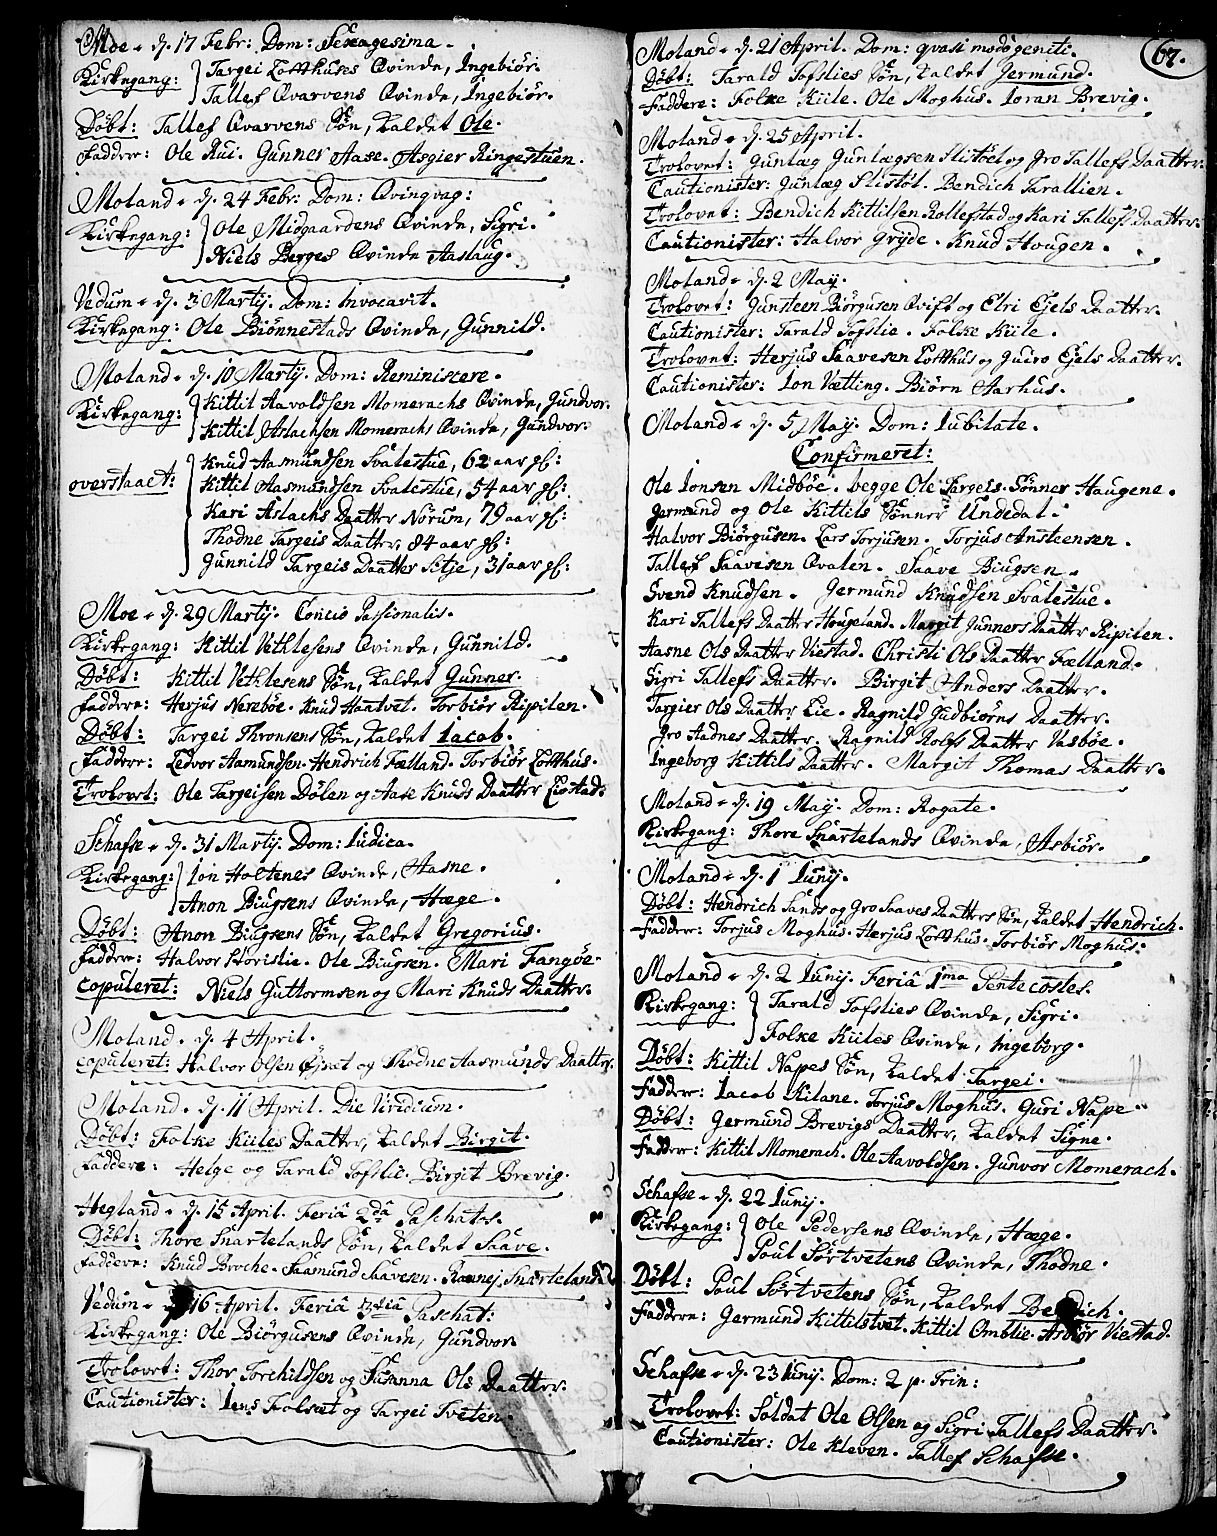 Moe d. 17 Febr: Dom: Sexagesima.
Kirkegang: Targei Loffthuses Qvinde, Ingebiør.
Tallef Qvarvens Qvinde, Ingebiør.
Døbt: Tallef Qvarvens Søn, kaldet Ole.
Faddere: Ole Rui. Gunner Aase. Asgier Ringestuen.
Moland d. 24 Febr: Dom: Qvinqvag:
Kirkegang: Ole Midgaardens Qvinde, Sigri.
Niels Berges Qvinde Aaslaug.
Vedum d. 3 Martij. Dom: Invocavit.
Kirkegang: Ole Biønnestads Qvinde, Gunnild.
Moland d. 10 Martij. Dom: Reminiscere.
Kirkegang: Kittil Aavoldsen Momerachs Qvinde, Gundvor.
Kittil Aslachsen Momerachs Qvinde, Gundvor.
Knud Aasmundsen Svalestue, 62 aar gl:
overstaaet: Kittil Aasmundsen Svalestue, 54 aar gl:
Kari Aslachs Daatter Nørum, 79 aar gl:
Thodne Targeis Daatter, 84 aar gl:
Gunnild Targeis Daatter Setje, 31 aar gl:
Moe d. 29 Martij. Concio Passionalis.
Kirkegang: Kittil Vethlesens Qvinde, Gunnild.
Døbt: Kittil Vethlesens Søn, kaldet Gunner.
Faddere: Herjus Nerebøe. Knud Haatvet. Torbiør Ripilen.
Døbt: Targei Thronsens Søn, kaldet Iacob.
Faddere: Ledvor Aamundsen. Hendrich Fælland. Torbiør Loffthus.
Trolovet: Ole Targeisen Dølen og Aase Knuds Daatter Liestad.
Schafse d. 31 Martij. Dom: Iudica.
Kirkegang: Ion Holtenes Qvinde, Aasne.
Anon Biugsens Qvinde, Hæge.
Døbt: Anon Biugsens Søn, kaldet Gregorius.
Faddere: Halvor Horislie. Ole Biugsen. Mari Fangøe.
Copuleret: Niels Guttormsen og Mari Knuds Daatter.
Moland d. 4 April.
Copuleret: Halvor Olsen Øset og Thodne Aasmunds Daatter.
Moland d. 11 April. Die Viridium.
Døbt: Folke Kiiles Daatter, kaldet Birgit.
Faddere: Helge og Tarald Tofslie. Birgit Brevig.
Hegland d. 15 April. Feriâ 2dâ Paschatos.
Døbt: Thore Snartelands Søn, kaldet Saave.
Faddere: Knud Broche. Saamund Saavesen. Rannej Snarteland.
Vedum d. 16 April. Feriâ 3tiâ Paschat:
Kirkegang: Ole Biørgusens Qvinde, Gundvor
Trolovet: Thor Torchildsen og Susanna Ols Daatter.
Cautionister: Iens Folsæt og Targei Tveten.
67.
Moland d. 21 April. Dom: qvasi modo geniti.
Døbt: Tarald Tofslies Søn, kaldet Jermund.
Faddere: Folke Kiile. Ole Moghus. Ioran Brevig.
Moland d. 25 April.
Trolovet: Gunlæg Gunlægsen Slistøl og Gro Tallefs Daatter.
Cautionister: Gunlæg Slistøl. Bendich Tarallien.
Trolovet: Bendich Kittilsen Rollefstad og Kari Tallefs Daatter.
Cautionister: Halvor Gryde. Knud Hougen.
Moland d. 2 Maij.
Trolovet: Gunsteen Biørgusen Qvift og Elri Ejels Daatter.
Cautionister: Tarald Tofslie. Folke Kiile.
Trolovet: Herjus Saavesen Loffthus og Guro Ejels Daatter.
Cautionister: Ion Vætting. Biørn Aarhus.
Moland d. 5 Maij. Dom: Iubilate.
Confirmeret:
Ole Ionsen Midbøe. begge Ole Targeis Sønner Haugene.
Jermund og Ole Kittils Sønner Undedal.
Halvor Biørgusen. Lars Torjusen. Torjus Ansteensen.
Tallef Saavesen Qvalen. Saave Biugsen.
Svend Knudsen. Germund Knudsen Svalestue.
Kari Tallefs Daatter Hougeland. Margit Gunners Daatter Ripilen.
Aasne Ols Daatter Viestad. Christi Ols Daatter Fælland.
Sigri Tallefs Daatter. Birgit Anders Daatter.
Targier Ols Daatter Lie. Ragnild Gudbiørns Daatter.
Gro Aadnes Daatter. Ragnild Rolfs Daatter Vasbøe.
Ingeborg Kittils Daatter. Margit Thomas Daatter.
Moland d. 19 Maij. Dom: Rogate.
Kirkegang: Thore Snartelands Qvinde, Asbiør.
Moland d. 1 Iunij.
Døbt: Hendrich Sands og Gro Saaves Daatters Søn, kaldet Hendrich.
Faddere: Torjus Moghus. Herjus Loffthus. Torbiør Moghus.
Moland d. 2 Iunij. Feriâ 1ma Pentecostes.
Kirkegang: Tarald Tofslies Qvinde, Sigri.
Folke Kiiles Qvinde, Ingeborg.
Døbt: Kittil Napes Søn, kaldet Targei.
Faddere: Iacob Kilane. Torjus Moghus. Guri Nape.
Døbt: Germund Brevigs Daatter, kaldet Signe.
Faddere: Kittil Momerach. Ole Aavoldsen. Gunvor Momerach.
Schafse d. 22 Iunij.
Kirkegang: Ole Pedersens Qvinde, Hæge.
Poul Sørtvetens Qvinde, Thodne.
Døbt: Poul Sørtvetens Søn, kaldet Bendich.
Faddere: Germund Kittilstvet. Kittil Omblie. Asbiør Viestad.
Schafse d. 23 Iunij. Dom: 2 p. Trin:
Trolovet: Soldat Ole Olsen og Sigri Tallefs Daatter.
Cautionister: Ole Kleven. Tallef Schafse.